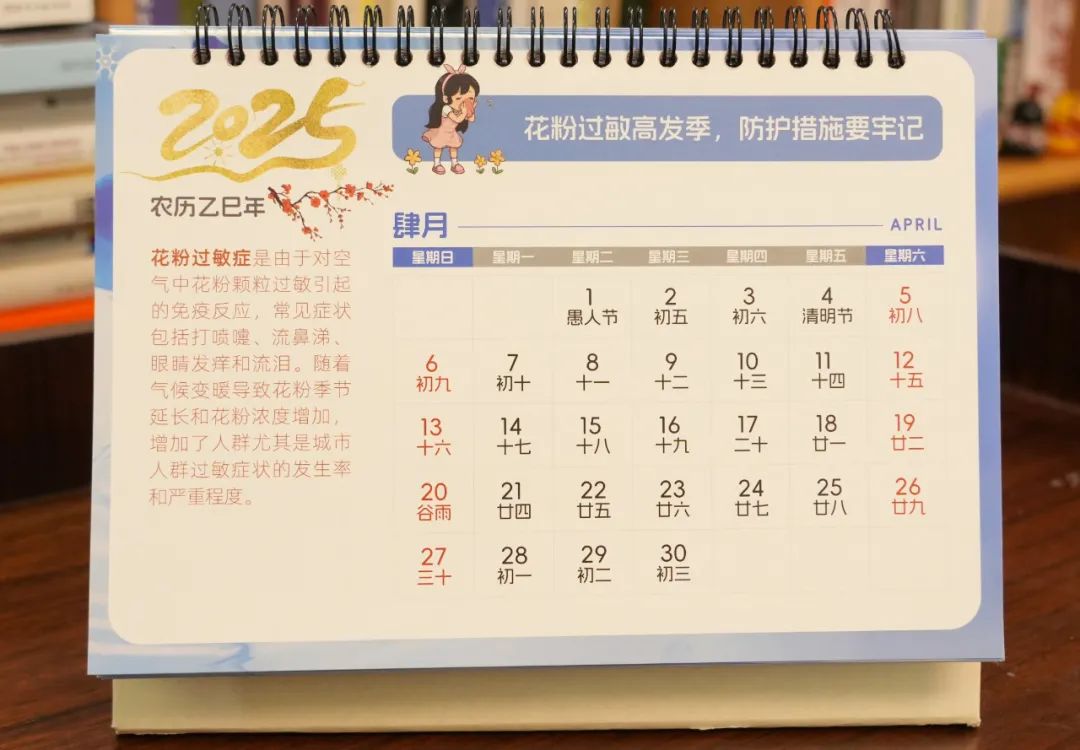 2025
农历乙巳年
花粉过敏症是由于对空
气中花粉颗粒过敏引起
的免疫反应，常见症状
包括打喷嚏、流鼻涕、
眼睛发痒和流泪。随着
气候变暖导致花粉季节
延长和花粉浓度增加，
增加了人群尤其是城市
人群过敏症状的发生率
和严重程度。
花粉过敏高发季，防护措施要牢记
肆月 APRIL
星期日 星期一 星期二 星期三 星期四 星期五 星期六
1 2 3 4 5
愚人节 初五 初六 清明节 初八
6 7 8 9 10 11 12
初九 初十 十一 十二 十三 十四 十五
13 14 15 16 17 18 19
十六 十七 十八 十九 二十 廿一 廿二
20 21 22 23 24 25 26
谷雨 廿四 廿五 廿六 廿七 廿八 廿九
27 28 29 30
三十 初一 初二 初三